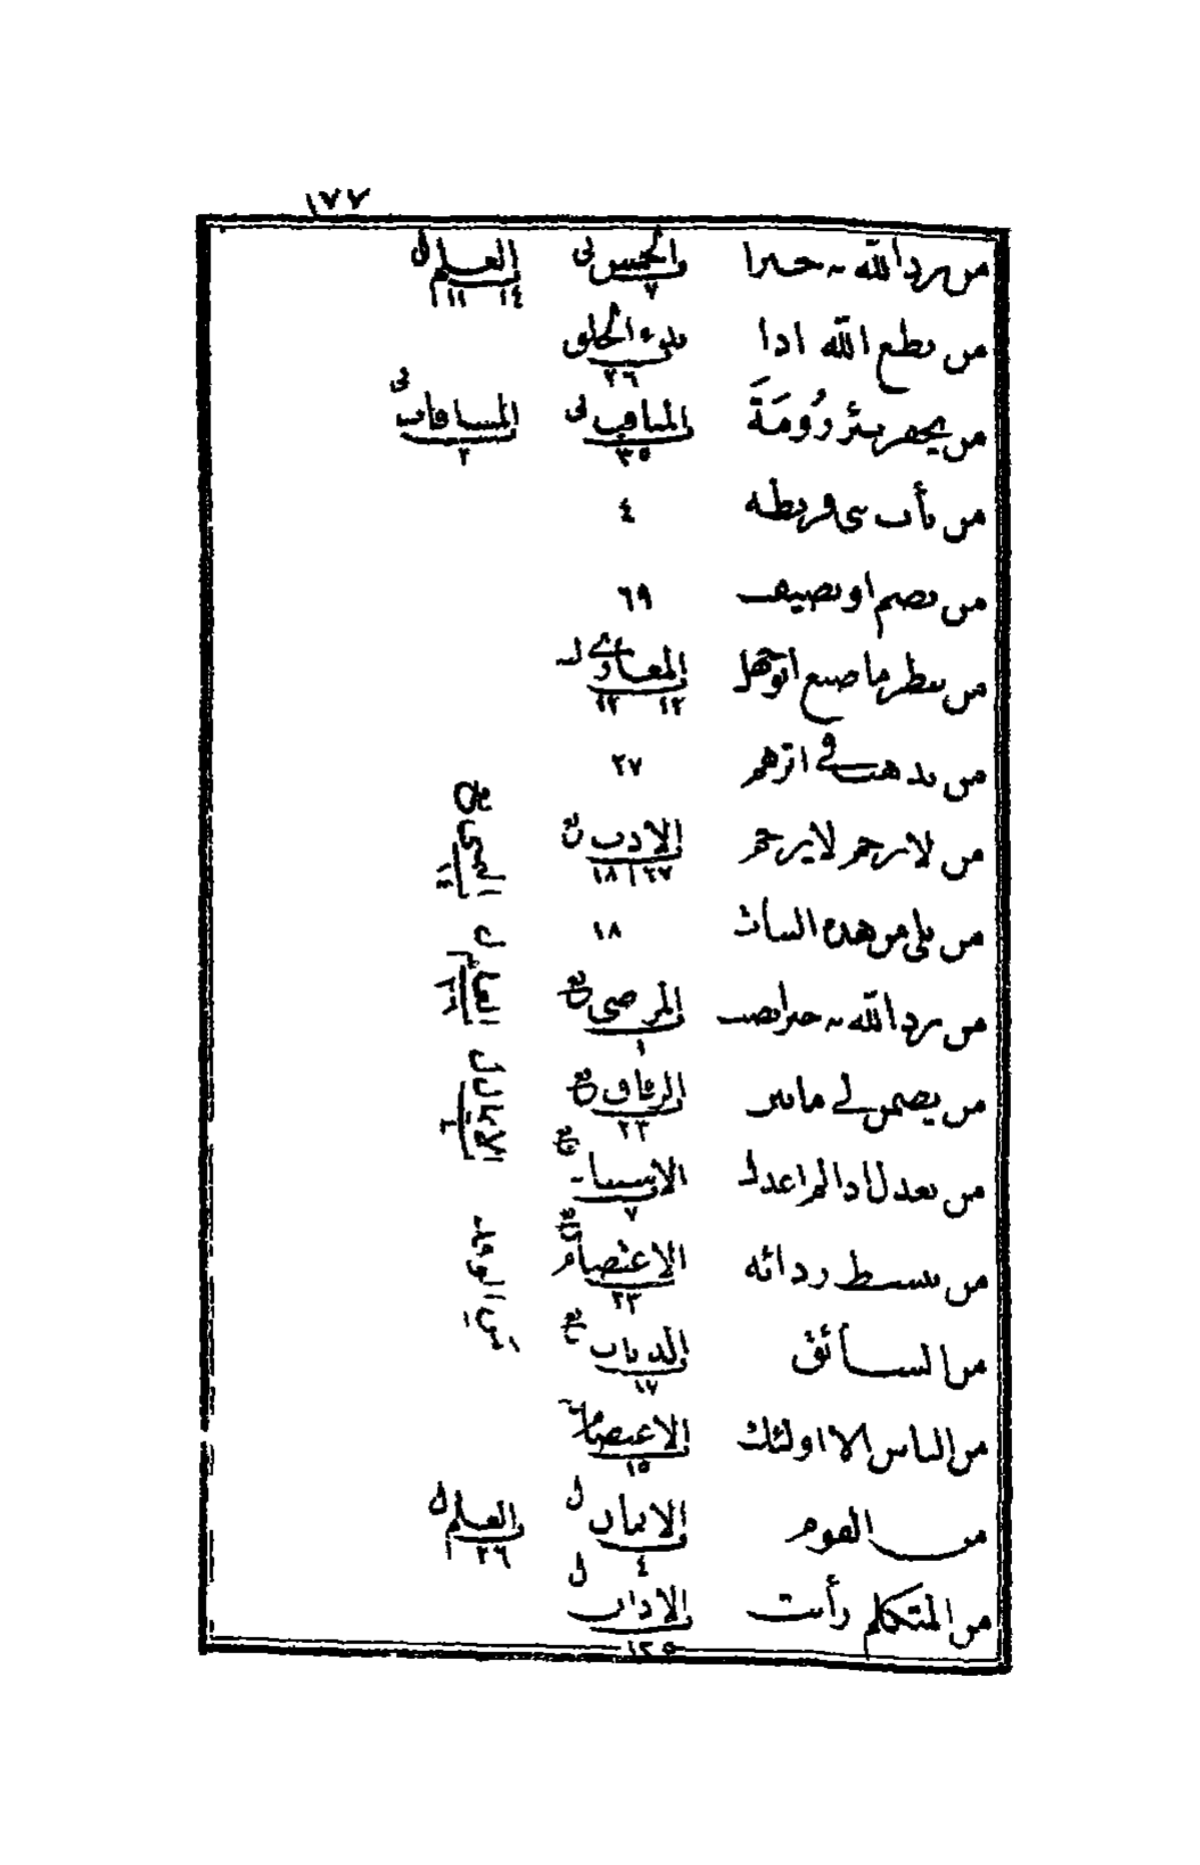 ١٧٧
من يرد الله به خيرا الخمس لى ٧ العلم ل ١٤ ١١
من يطع الله اذا بدء الخلق ٢٦
من يحفر بئر رُومَةَ المناقب لى ٣٥ المساقات لى ٢
من يأت بنى قريظه ٤
من يضم او يضيف ٦٩
من ينظر ما صنع ابوجهل المغازى ١٢ ١٢
من يذهب فى اثرهم ٢٧
من لا يرحم لا يرحم الادب ١٨ ٢٧
من يلى من هذه البنات ١٨
من يرد الله به خيرا يصب المرضى ١
من يضمن لى مابين الرقاق ٢٣
من يعدل اذا لم اعدل الانبياء ٧
من يبسط ردائه الاعتصام ٢٣
من السائق الديات ١٧
من الناس الا اولئك الاعتصام ١٥
من القوم الايمان ل ٤ العلم ل ٢٦
من المتكلم رأيت الاذان ل ١٢٥
من الوفد